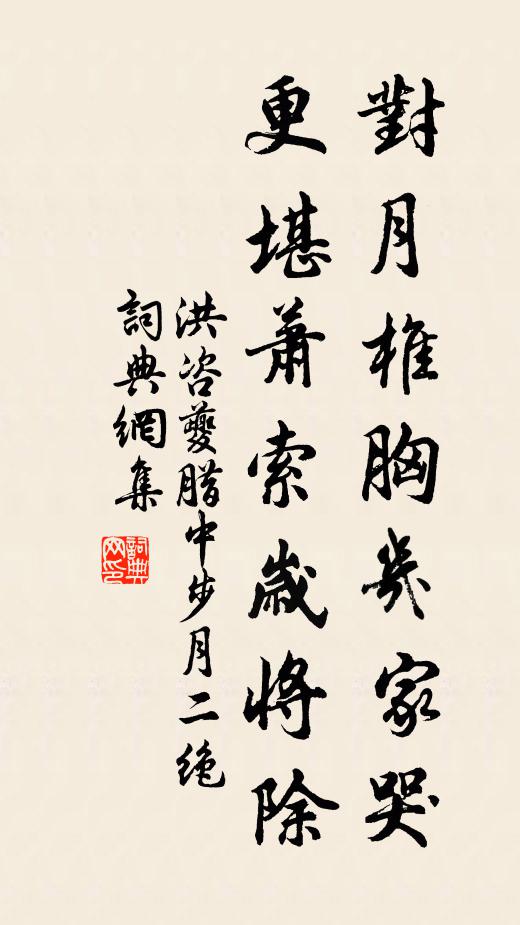 對月椎胸幾家哭
更堪蕭索歲將除
洪咨夔腊中步月二绝
詞典網集
詞典網印